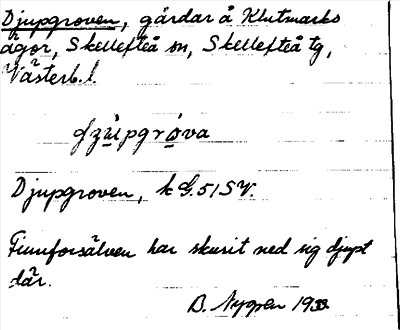 Djupgroven, gårdar å Klutmarks
ägor, Skellefteå sn, Skellefteå tg,
Västerb. l.
Djupgroven, k G. 51 SV.
Finnforsälven har skurit ned sig djupt
där.
B. Nygren 1933